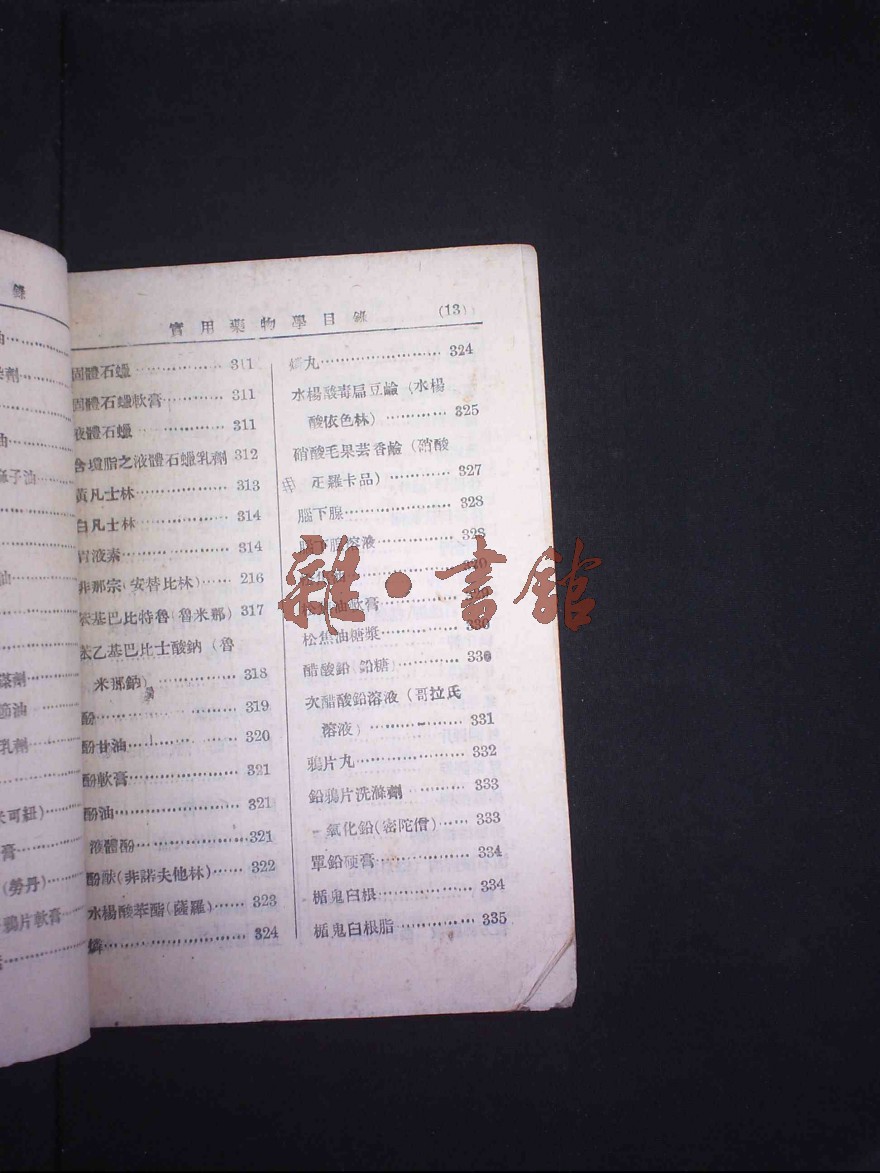 錄
實用藥物學目錄 (13)
固體石蠟 311
固體石蠟軟膏 311
液體石蠟 311
含瓊脂之液體石蠟乳劑 312
黃凡士林 313
白凡士林 314
胃液素 314
非那宗(安替比林) 216
苯基巴比特魯(魯米那) 317
苯乙基巴比士酸鈉(魯
米那鈉) 318
酚 319
酚甘油 320
酚軟膏 321
酚油 321
液體酚 321
酚酞(非諾夫他林) 322
水楊酸苯酯(薩羅) 323
燐 324
丸 324
水楊酸毒扁豆鹼(水楊
酸依色林) 325
硝酸毛果芸香鹼(硝酸
匹羅卡品) 327
腦下腺 328
腦下腺溶液 328
軟膏
松焦油糖漿 330
醋酸鉛(鉛糖) 330
次醋酸鉛溶液(哥拉氏
溶液) 331
鴉片丸 332
鉛鴉片洗滌劑 333
一氧化鉛(密陀僧) 333
單鉛硬膏 334
楯鬼臼根 334
楯鬼臼根脂 335
油
油
子油
油
節油
乳劑
米可鈕)
膏
(勞丹)
鴉片軟膏
雜·書館